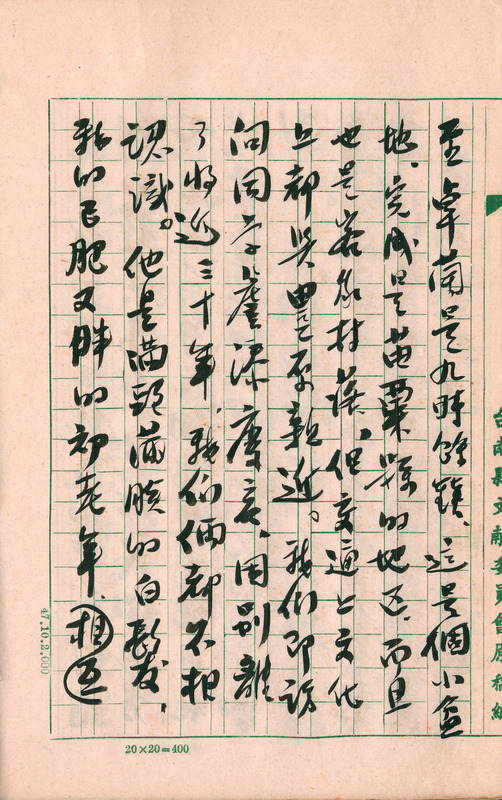 至卓蘭是九時餘鐘、這是個小盆
地、完成是苗栗縣的地區、而且
也是客家村落、但交通上文化
上都與豐原親近。我們即訪
問同學詹添慶,因別離
了將近三十年,我们倆都不相
認識。他是滿頭滿臉的白髮,
我的已肥又胖的初老年、相逗
台南縣文獻委員會原稿紙
47.10.2.000
20×20=400